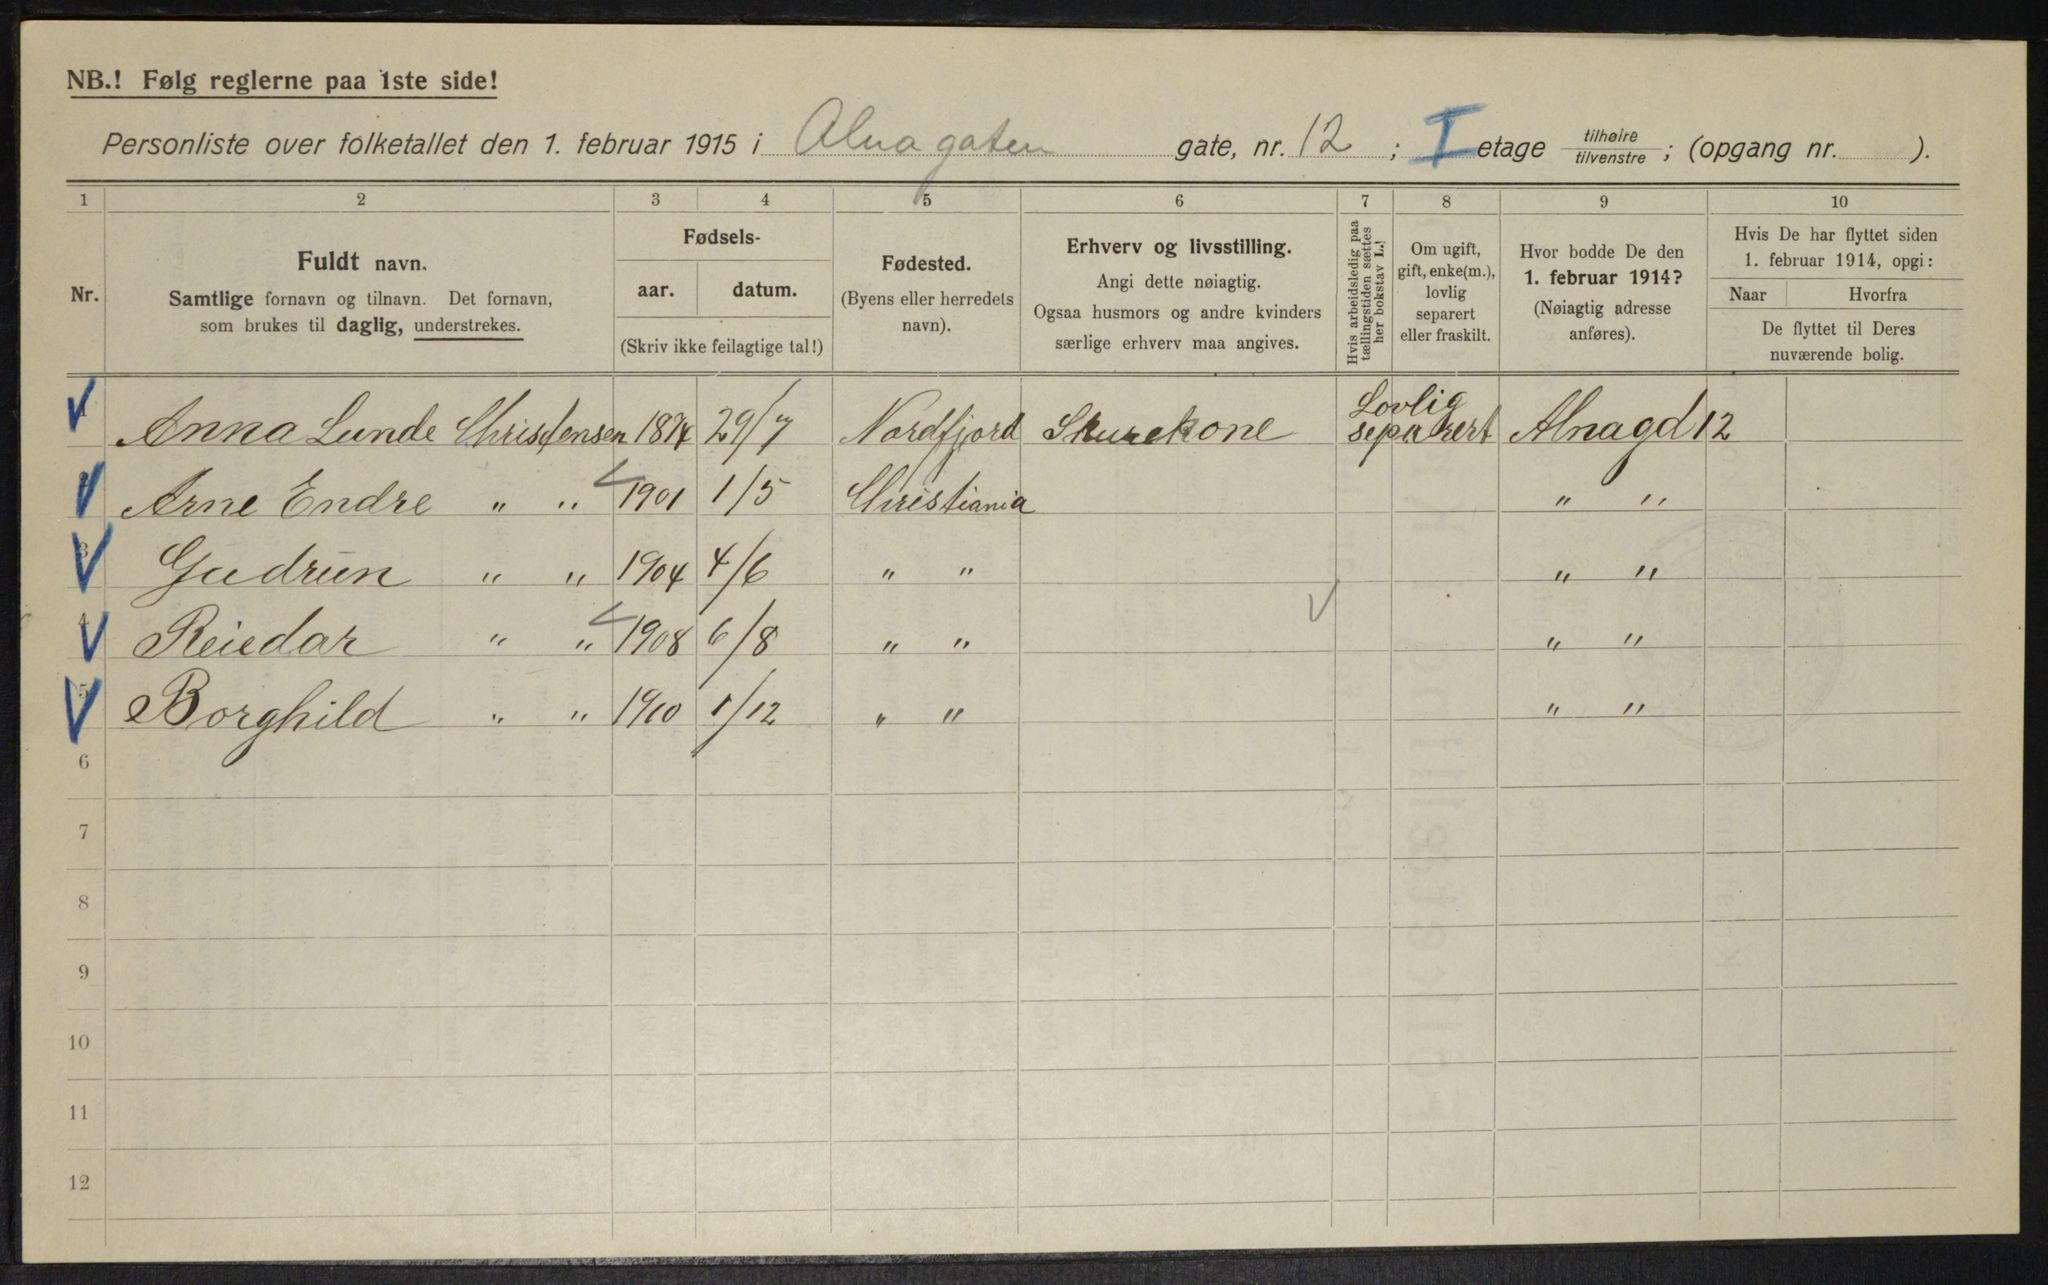 NB.! Følg reglerne paa 1ste side!
Personliste over folketallet den 1. februar 1915 i Alnagaten gate, nr. 12; I etage tilhøire/tilvenstre; (opgang nr. ).
1 2 3 4 5 6 7 8 9 10
Nr.
Fuldt navn.
Samtlige fornavn og tilnavn. Det fornavn,
som brukes til daglig, understrekes.
Fødsels-
aar. datum.
(Skriv ikke feilagtige tal!)
Fødested.
(Byens eller herredets
navn).
Erhverv og livsstilling.
Angi dette nøiagtig.
Ogsaa husmors og andre kvinders
særlige erhverv maa angives.
Hvis arbeidsledig paa
tællingstiden sættes
her bokstav L.!
Om ugift,
gift, enke(m.),
lovlig
separert
eller fraskilt.
Hvor bodde De den
1. februar 1914?
(Nøiagtig adresse
anføres).
Hvis De har flyttet siden
1. februar 1914, opgi:
Naar Hvorfra
De flyttet til Deres
nuværende bolig.
1 Anna Lunde Chrisdensen 1874 29/7 Nordfjord Skurekone Lovlig separert Alnagd 12
2 Arne Endre " " 1901 1/5 Christiania " "
3 Gudrun " " 1904 4/6 " " " "
4 Reiedar " " 1908 6/8 " " " "
5 Borghild " " 1910 1/12 " " " "
6
7
8
9
10
11
12